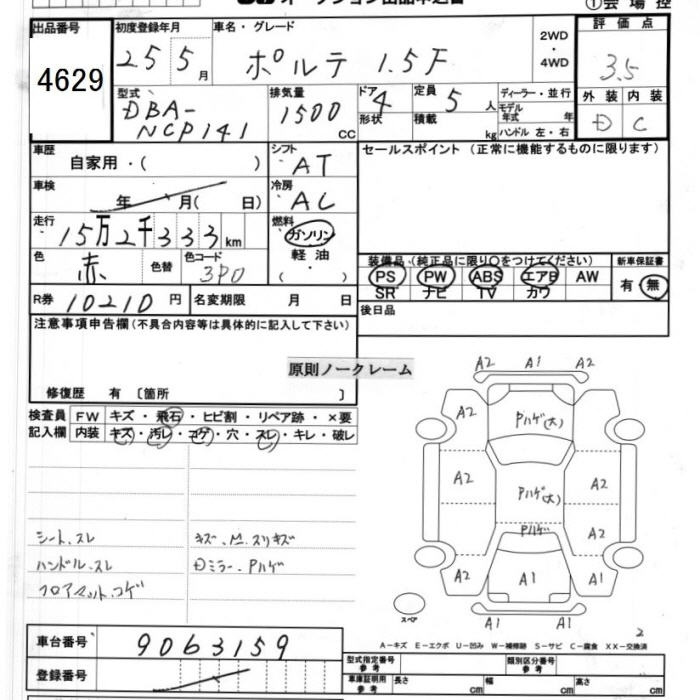 オークション出品申込書
①会場控
出品番号
4629
初度登録年月
25 5月
車名・グレード
ポルテ 1.5F
2WD
・
4WD
評価点
3.5
外装 内装
D C
型式
DBA-
NCP141
排気量
1500 CC
ドア 4
形状
定員 5 人
積載 kg
ディーラー・並行
モデル
年式 年
ハンドル 左・右
車歴
自家用・( )
シフト
AT
車検
年 月( 日)
冷房
AC
走行
15万2千333km
燃料
ガソリン
軽油
( ・ )
色
赤
色替
色コード
3P0
R券 10210 円
名変期限 月 日
セールスポイント (正常に機能するものに限ります)
装備品 (純正品に限り○をつけてください)
新車保証書
PS PW ABS エアB AW
SR ナビ TV カワ
有・無
後日品
注意事項申告欄(不具合内容等は具体的に記入して下さい)
原則ノークレーム
修復歴 有〔箇所 〕
検査員
記入欄
FW キズ・飛石・ヒビ割・リペア跡・×要
内装 キズ・汚レ・コゲ・穴・スレ・キレ・破レ
シート.スレ
ハンドル.スレ
フロアマット.コゲ
キズ.凹.スリキズ
Dミラー.Pハゲ
A2 A1 A2
A2 Pハゲ(大) A2
A2 Pハゲ(大) A2
Pハゲ A2
A2 A1 A1
A1 A1
スペア
2
A-キズ E-エクボ U-凹み W-補修跡 S-サビ C-腐食 XX-交換済
車台番号 9063159
登録番号
型式指定番号
参考
類別区分番号
参考
車庫証明用
参考
長さ cm 幅 cm 高さ cm